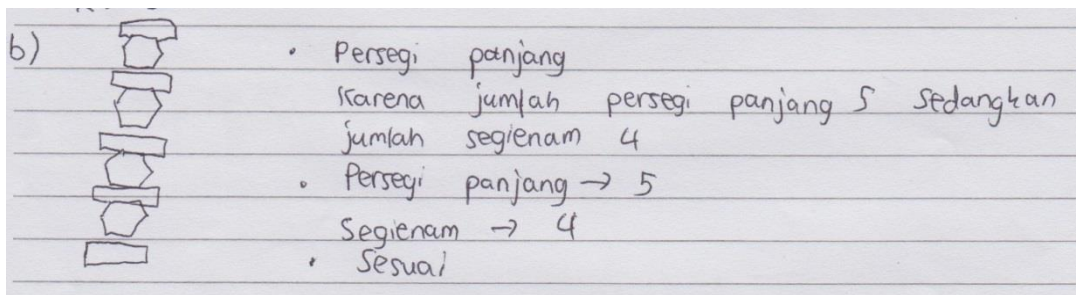 b)
• Persegi panjang
Karena jumlah persegi panjang 5 sedangkan
jumlah segienam 4
• Persegi panjang → 5
Segienam → 4
• Sesuai